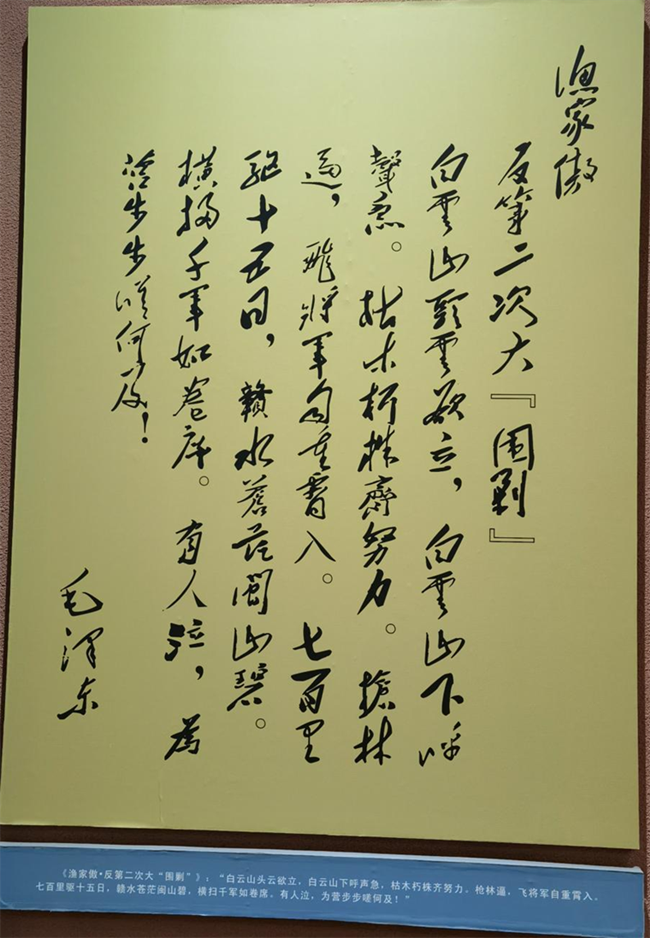 渔家傲
反第二次大『围剿』
白雲山頭雲欲立，白雲山下呼
聲急。枯木朽株齊努力。槍林
逼，飛將軍自重霄入。七百里
驅十五日，贛水蒼茫閩山碧。
橫掃千軍如卷席。有人泣，為
營步步嗟何及！
毛澤东
《渔家傲•反第二次大“围剿”》：“白云山头云欲立，白云山下呼声急，枯木朽株齐努力。枪林逼，飞将军自重霄入。
七百里驱十五日，赣水苍茫闽山碧，横扫千军如卷席。有人泣，为营步步嗟何及！”